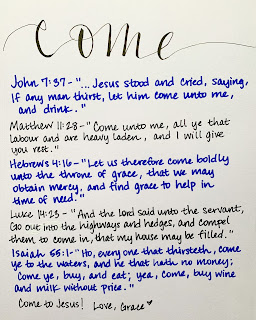 come
John 7:37 - "... Jesus stood and cried, saying,
If any man thirst, let him come unto me,
and drink."
Matthew 11:28 - "Come unto me, all ye that
labour and are heavy laden, and I will give
you rest."
Hebrews 4:16 - "Let us therefore come boldly
unto the throne of grace, that we may
obtain mercy, and find grace to help in
time of need."
Luke 14:23 - "And the lord said unto the servant,
Go out into the highways and hedges, and compel
them to come in, that my house may be filled."
Isaiah 55:1 - "Ho, every one that thirsteth, come
ye to the waters, and he that hath no money;
come ye, buy, and eat; yea, come, buy wine
and milk without price."
Come to Jesus! Love, Grace ♥